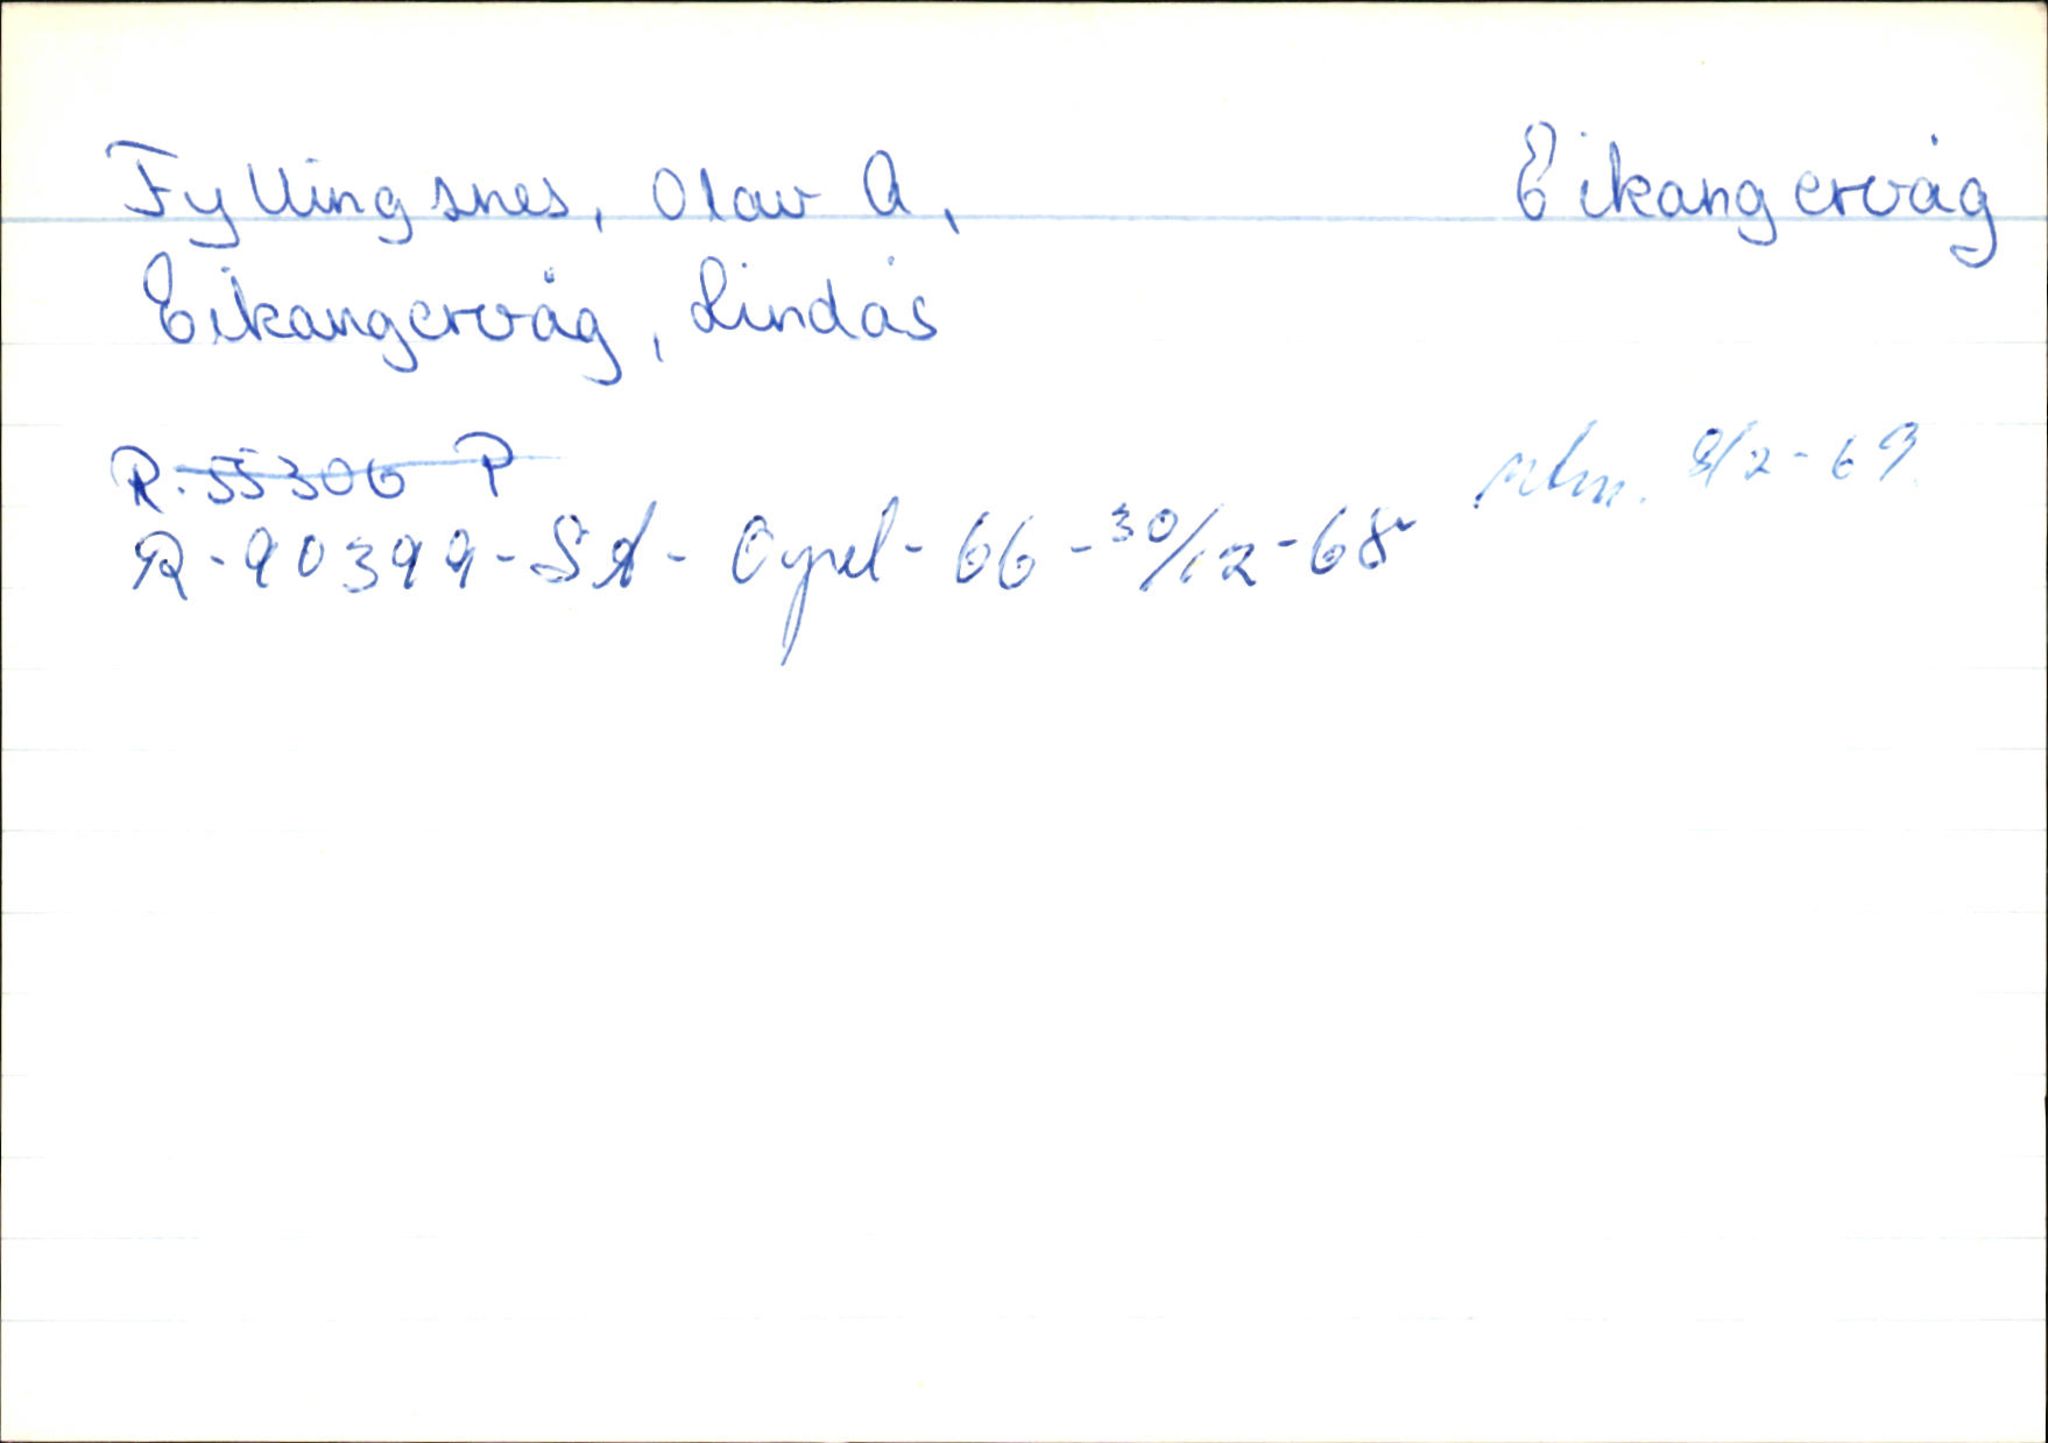 Fyllingsnes, Olav A, Eikangervåg
Eikangervåg, Lindås
R-55306 P
R-90399-SA- Opel-66-30/12-68 9/2-69